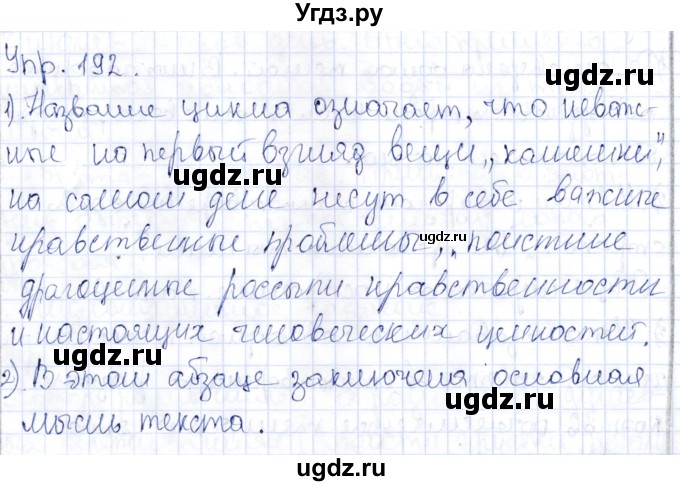 Угдз.ру
Упр. 192.
ugdz.ru
1). Название цикла означает, что неваж-
ugdz.ru
ные на первый взгляд вещи „камешки",
ugdz.ru
на самом деле несут в себе важные
нравственные проблемы, поистине
ugdz.ru
драгоценные россыпи нравственности
и настоящих человеческих ценностей.
ugdz.ru
2). В этом абзаце заключена основная
ugdz.ru
мысль текста.
ugdz.ru
ugdz.ru